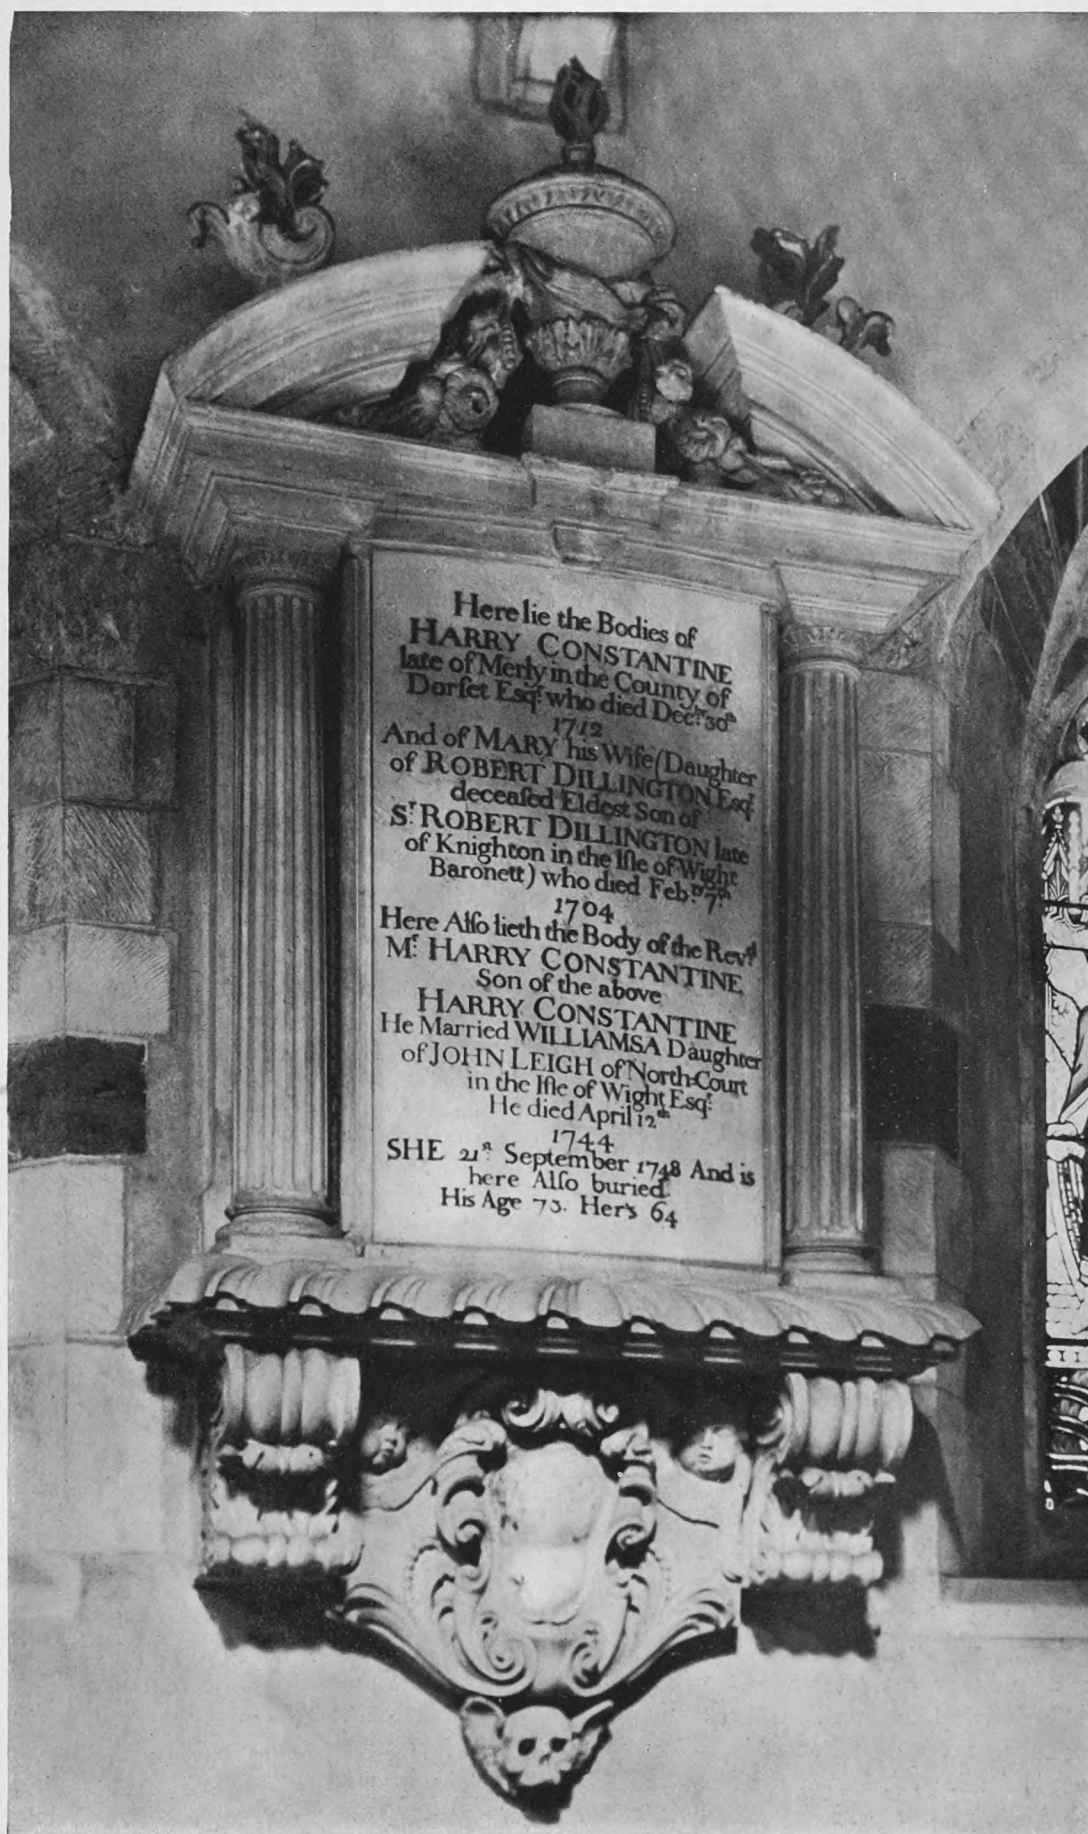 Here lie the Bodies of
HARRY CONSTANTINE
late of Merly in the County of
Dorſet Esqr. who died Decbr. 30th
1712
And of MARY his Wife (Daughter
of ROBERT DILLINGTON Esqr.
deceaſed Eldest Son of
Sr. ROBERT DILLINGTON late
of Knighton in the Iſle of Wight
Baronett) who died Febry. 7th.
1704
Here Alſo lieth the Body of the Revd.
Mr. HARRY CONSTANTINE
Son of the above
HARRY CONSTANTINE
He Married WILLIAMSA Daughter
of JOHN LEIGH of North-Court
in the Iſle of Wight Esqr.
He died April 12th
1744
SHE 21st. September 1748 And is
here Alſo buried.
His Age 73. Her's 64